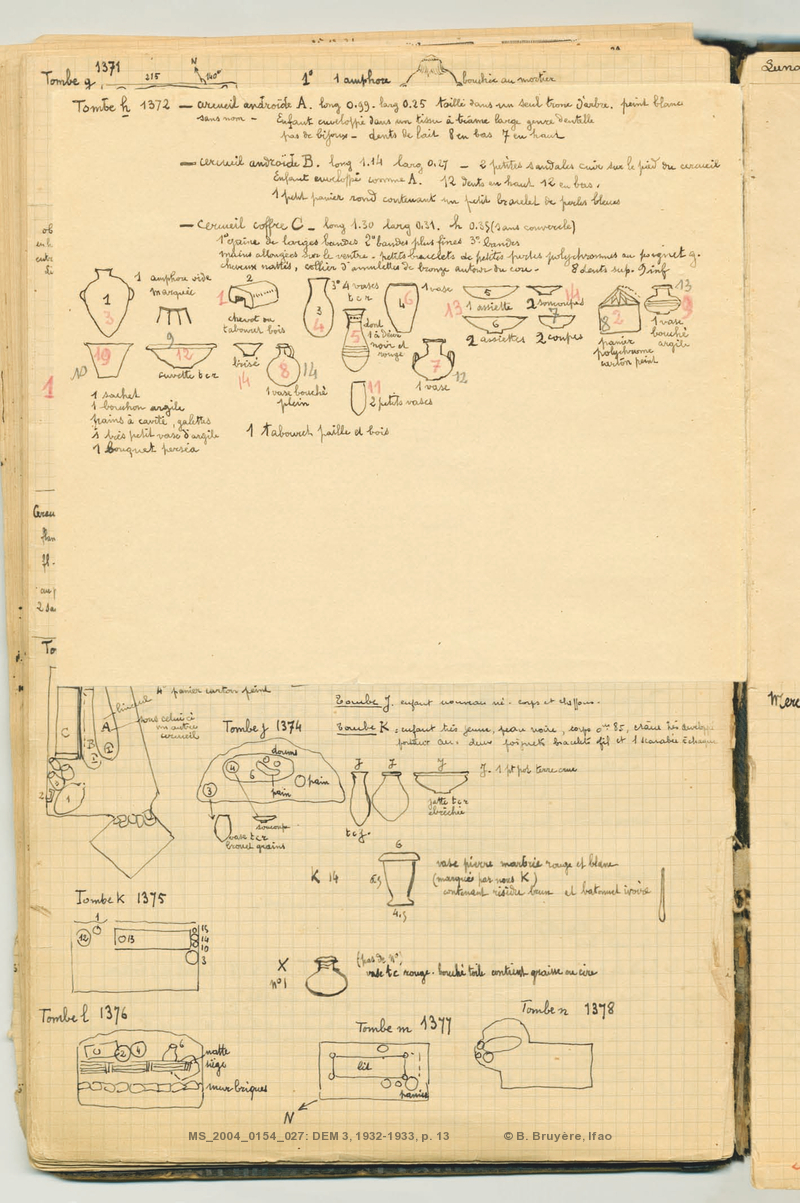 Tombe g 1371
215
N
140°
1° 1 amphore
bouchée au mortier
Tombe h 1372 — cercueil androïde A. long 0.99. larg 0.25 taillé dans un seul tronc d'arbre. peint blanc
sans nom - Enfant enveloppé dans un tissu à trame large genre dentelle
pas de bijoux - dents de lait 8 en bas 7 en haut
— cercueil androïde B. long 1.14 larg 0.27 — 2 petites sandales cuir sur le pied du cercueil
Enfant enveloppé comme A. 12 dents en haut 12 en bas.
1 petit panier rond contenant un petit bracelet de perles bleues
— Cercueil coffre C — long 1.30 larg 0.31. h 0.35 (sans couvercle)
1° gaine de larges bandes 2° bandes plus fines 3° bandes
mains allongées sur le ventre - petits bracelets de petites perles polychromes au poignet g.
cheveux nattés, collier d'amulettes de bronze autour du cou - 8 dents sup. 9 inf
1 amphore vide
marquée
1
3
9
2
1
chevet ou
tabouret bois
3° 4 vases
t c r
3
4
dont
1 à décor
noir et
rouge
5
1 vase
4
6
13
5
1 assiette
2 soucoupes
14
6
2 assiettes
7
2 coupes
8
2
panier
polychrome
carton peint
13
9
1 vase
bouché
argile
N°
10
12
cuvette t c r
brisé
14
8
14
1 vase bouché
plein
11
2 petits vases
7
12
1 vase
1
1 sachet
1 bouchon argile
pains à cavité, galettes
1 très petit vase d'argile
1 bouquet perséa
1 tabouret paille et bois
4° panier carton peint
C
B
A
sous celui-ci
un autre
cercueil
1
Tombe J 1374
doums
4
6
3
pain
pain
soucoupe
vase t c r
grains
Tombe J. enfant nouveau né. corps et chiffons.
Tombe K. enfant très jeune, peau noire, corps 0m 85, crâne très
deux poignets bracelets fil et 1 scarabée
J
J
J
J. 1 pt pot terre crue
t c j.
jatte t c r
ébréchée
K 14
6
4.5
vase pierre marbrée rouge et blanc
(marquée par nous K)
contenant résidu brun et batonnet ivoire
Tombe K 1375
1
12
13
15
14
10
3
X
N° 1
(pas de N°)
vase t c rouge. bouché toile contient graisse ou cire
Tombe l 1376
2
4
6
natte
siège
mur briques
Tombe m 1377
lit
panier
N
Tombe n 1378
MS_2004_0154_027: DEM 3, 1932-1933, p. 13 © B. Bruyère, Ifao